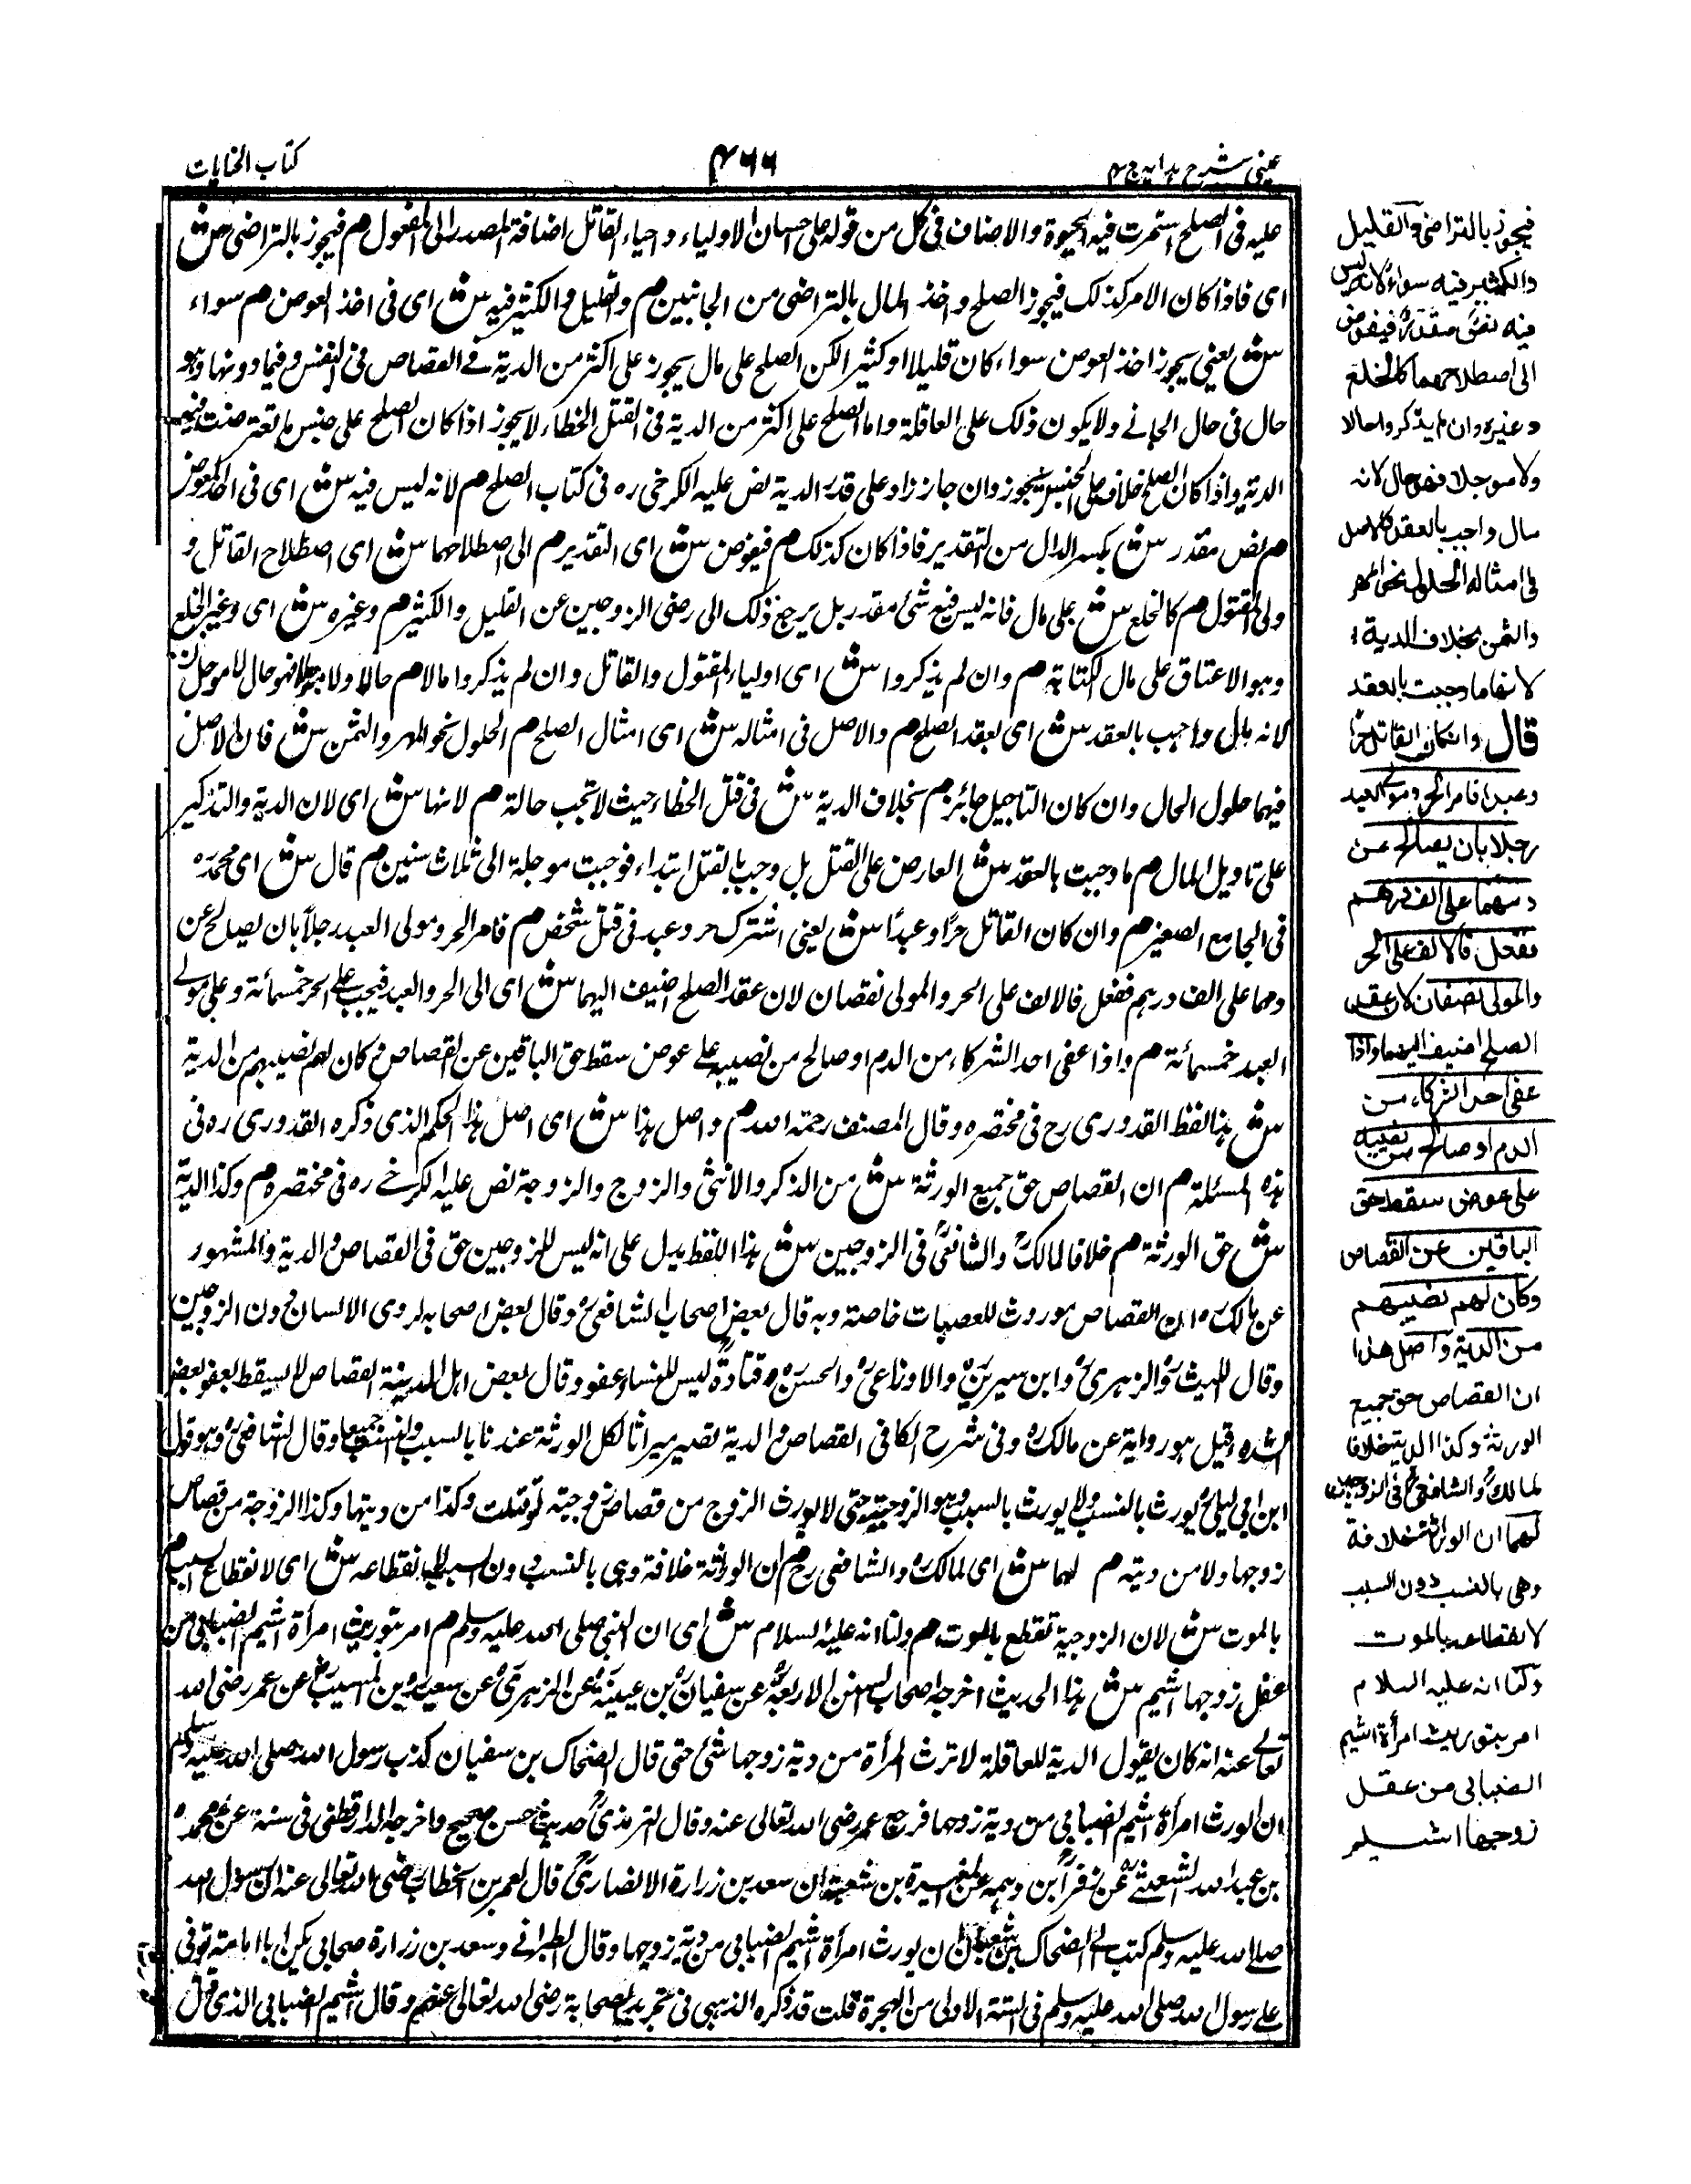 عینی شرح ہدایہ ج ۴
۴۶۶
کتاب الجنایات
علیه فی الصلح استمرت فیه الحیوة والاضاف فی کل من قوله علی احسان الاولیاء واحیاء القاتل اضافة المصدر الی المفعول م فیجوز بالتراضی ش
ای فاذا کان الامر کذلک فیجوز الصلح واخذ المال بالتراضی من الجانبین م والقلیل والکثیر فیه ش ای فی اخذ العوض م سواء
ش یعنی یجوز اخذ العوض سواء کان قلیلا او کثیرا لکن الصلح علی مال یجوز علی اکثر من الدیة فی القصاص فی النفس وفیما دونها وهو
حال فی مال الجانی ولا یکون ذلک علی العاقلة واما الصلح علی اکثر من الدیة فی القتل الخطاء لا یجوز اذا کان الصلح علی جنس ما تعترضت فیه
الدیة واذا کان الصلح خلاف علی الجنس یجوز وان جاز زاد علی قدر الدیة نص علیه الکرخی ره فی کتاب الصلح م لانه لیس فیه ش ای فی اخذ العوض
م نص مقدر ش بکسر الدال من التقدیر فاذا کان کذلک م فیفوض ش ای التقدیر م الی اصطلاحهما ش ای اصطلاح القاتل و
ولی المقتول م کالخلع ش علی مال فانه لیس فیه شئ مقدر بل یرجع ذلک الی رضی الزوجین عن القلیل والکثیر م وغیره ش ای وغیر الخلع
وهو الاعتاق علی مال الکتابة م وان لم یذکروا ش ای اولیاء المقتول والقاتل وان لم یذکروا مالا م حالا ولا مؤجلا فهو حال لا مؤجل ش
لانه مال واجب بالعقد ش ای بعقد الصلح م والاصل فی امثاله ش ای امثال الصلح م الحلول نحو المهر والثمن ش فان الاصل
فیهما حلول الحال وان کان التاجیل جائز م بخلاف الدیة ش فی قتل الخطاء حیث لا تجب حالة م لانها ش ای لان الدیة والتذکیر
علی تاویل المال م ما وجبت بالعقد ش العارض علی القتل بل وجب بالقتل ابتداء فوجبت موجلة الی ثلاث سنین م قال ش ای محمد ره
فی الجامع الصغیر م وان کان القاتل حرًا وعبدًا ش یعنی اشترک حر وعبد فی قتل شخص م فامر الحر ومولی العبد رجلاً بان یصالح عن
دمهما علی الف درهم ففعل فالالف علی الحر والمولی نصفان لان عقد الصلح اضیف الیهما ش ای الی الحر والعبد فیجب علی الحر خمسمائة وعلی مولی
العبد خمسمائة م واذا عفی احد الشرکاء من الدم او صالح من نصیبه علی عوض سقط حق الباقین عن القصاص و کان لهم نصیبهم من الدیة
ش هذا لفظ القدوری رح فی مختصره وقال المصنف رحمة الله م واصل هذا ش ای اصل هذا الحکم الذی ذکره القدوری ره فی
هذه المسئلة م ان القصاص حق جمیع الورثة ش من الذکر والانثی والزوج والزوجة نص علیه الکرخی ره فی مختصره م وکذا الدیة
ش حق الورثة م خلافا لمالک والشافعی فی الزوجین ش هذا اللفظ یدل علی انه لیس للزوجین حق فی القصاص و الدیة والمشهور
عن مالک ره ان القصاص موروث للعصبات خاصة وبه قال بعض اصحاب الشافعی وقال بعض اصحابه لذوی الانساب دون الزوجین
وقال اللیث والزهری وابن سیرین والاوزاعی والحسن وقتادة لیس للنساء عفو وقال بعض اهل المدینة القصاص لا یسقط بعفو بعض
الشرکاء وقیل هو روایة عن مالک ره وفی شرح الکافی القصاص و الدیة تصیر میراثا لکل الورثة عندنا بالسبب والنسب جمیعا وقال الشافعی وهو قول
ابن ابی لیلی یورث بالنسب ولا یورث بالسبب وهو الزوجیة حتی لا یورث الزوج من قصاص زوجته لو قتلت وکذا من دیتها وکذا الزوجة من قصاص
زوجها ولا من دیته م لهما ش ای لمالک ره والشافعی رح م ان الوراثة خلافة وهی بالنسب دون السبب لانقطاعه ش ای لانقطاع السبب م
بالموت ش لان الزوجیة تقطع بالموت م ولنا انه علیه السلام ش ای ان النبی صلی الله علیه وسلم م امر بتوریث امرأة اشیم الضبابی من
عقل زوجها اشیم ش هذا الحدیث اخرجه اصحاب السنن الاربعة عن سفیان بن عیینة عن الزهری عن سعید بن المسیب عن عمر رضی الله
تعالی عنه انه کان یقول الدیة للعاقلة لا ترث المرأة من دیة زوجها شئ حتی قال الضحاک بن سفیان کتب رسول الله صلی الله علیه وسلم
ان اورث امرأة اشیم الضبابی من دیة زوجها فرجع عمر رضی الله تعالی عنه وقال الترمذی حدیث حسن صحیح واخرجه الدارقطنی فی سننه عن محمد ره
بن عبد الله الشعیثی عن زفر ابن وهیمة عن المغیرة بن شعبة ان سعد بن زرارة الانصاری قال لعمر بن الخطاب رضی الله تعالی عنه ان رسول الله
صلی الله علیه وسلم کتب الی الضحاک بن ان یورث امرأة اشیم الضبابی من دیة زوجها وقال الطبرانی وسعد بن زرارة صحابی یکنی ابا امامة توفی
علی رسول الله صلی الله علیه وسلم فی السنة الاولی من الهجرة قلت قد ذکره الذهبی فی تجرید الصحابة رضی الله تعالی عنهم وقال اشیم الضبابی الذی قتل
فیجوز بالتراضی والقلیل
والکثیر فیه سواء لانه لیس
فیه نص مقدر فیفوض
الی اصطلاحهما کالخلع
وغیره وان لم یذکروا حالا
ولا موجلا فهو حال لانه
مال واجب بالعقد والاصل
فی امثاله الحلول نحو المهر
والثمن بخلاف الدیة
لانها ما وجبت بالعقد
قال وان کان القاتل حرا
وعبدا فامر الحر ومولی العبد
رجلا بان یصالح عن
دمهما علی الف درهم
ففعل فالالف علی الحر
والمولی نصفان لان عقد
الصلح اضیف الیهما واذا
عفی احد الشرکاء من
الدم او صالح من نصیبه
علی عوض سقط حق
الباقین عن القصاص
وکان لهم نصیبهم
من الدیة واصل هذا
ان القصاص حق جمیع
الورثة وکذا الدیة خلافا
لمالک والشافعی فی الزوجین
لهما ان الوراثة خلافة
وهی بالنسب دون السبب
لانقطاعه بالموت
ولنا انه علیه السلام
امر بتوریث امرأة اشیم
الضبابی من عقل
زوجها اشیم